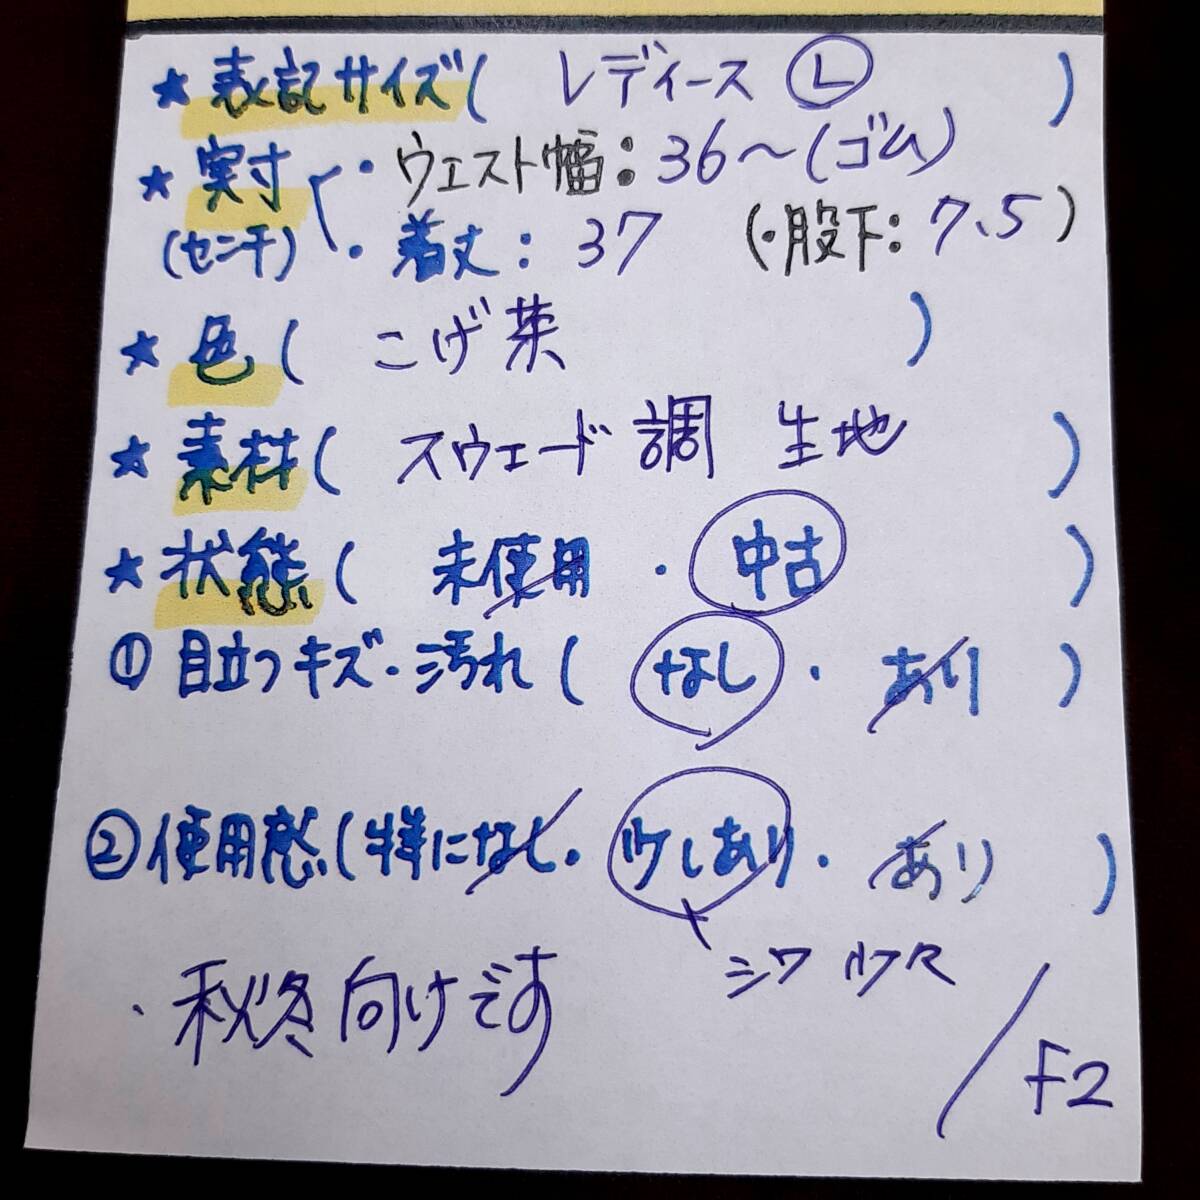 ★ 表記サイズ( レディース Ⓛ )
★ 実寸 ・ウェスト幅：36〜(ゴム)
(センチ) ・着丈：37 (・股下：7.5)
★ 色( こげ茶 )
★ 素材( スウェード調 生地 )
★ 状態( 未使用 ・ 中古 )
① 目立つキズ・汚れ( なし ・ あり )
② 使用感(特になし・少しあり・あり )
シワ少々
・秋冬向けです
/F2